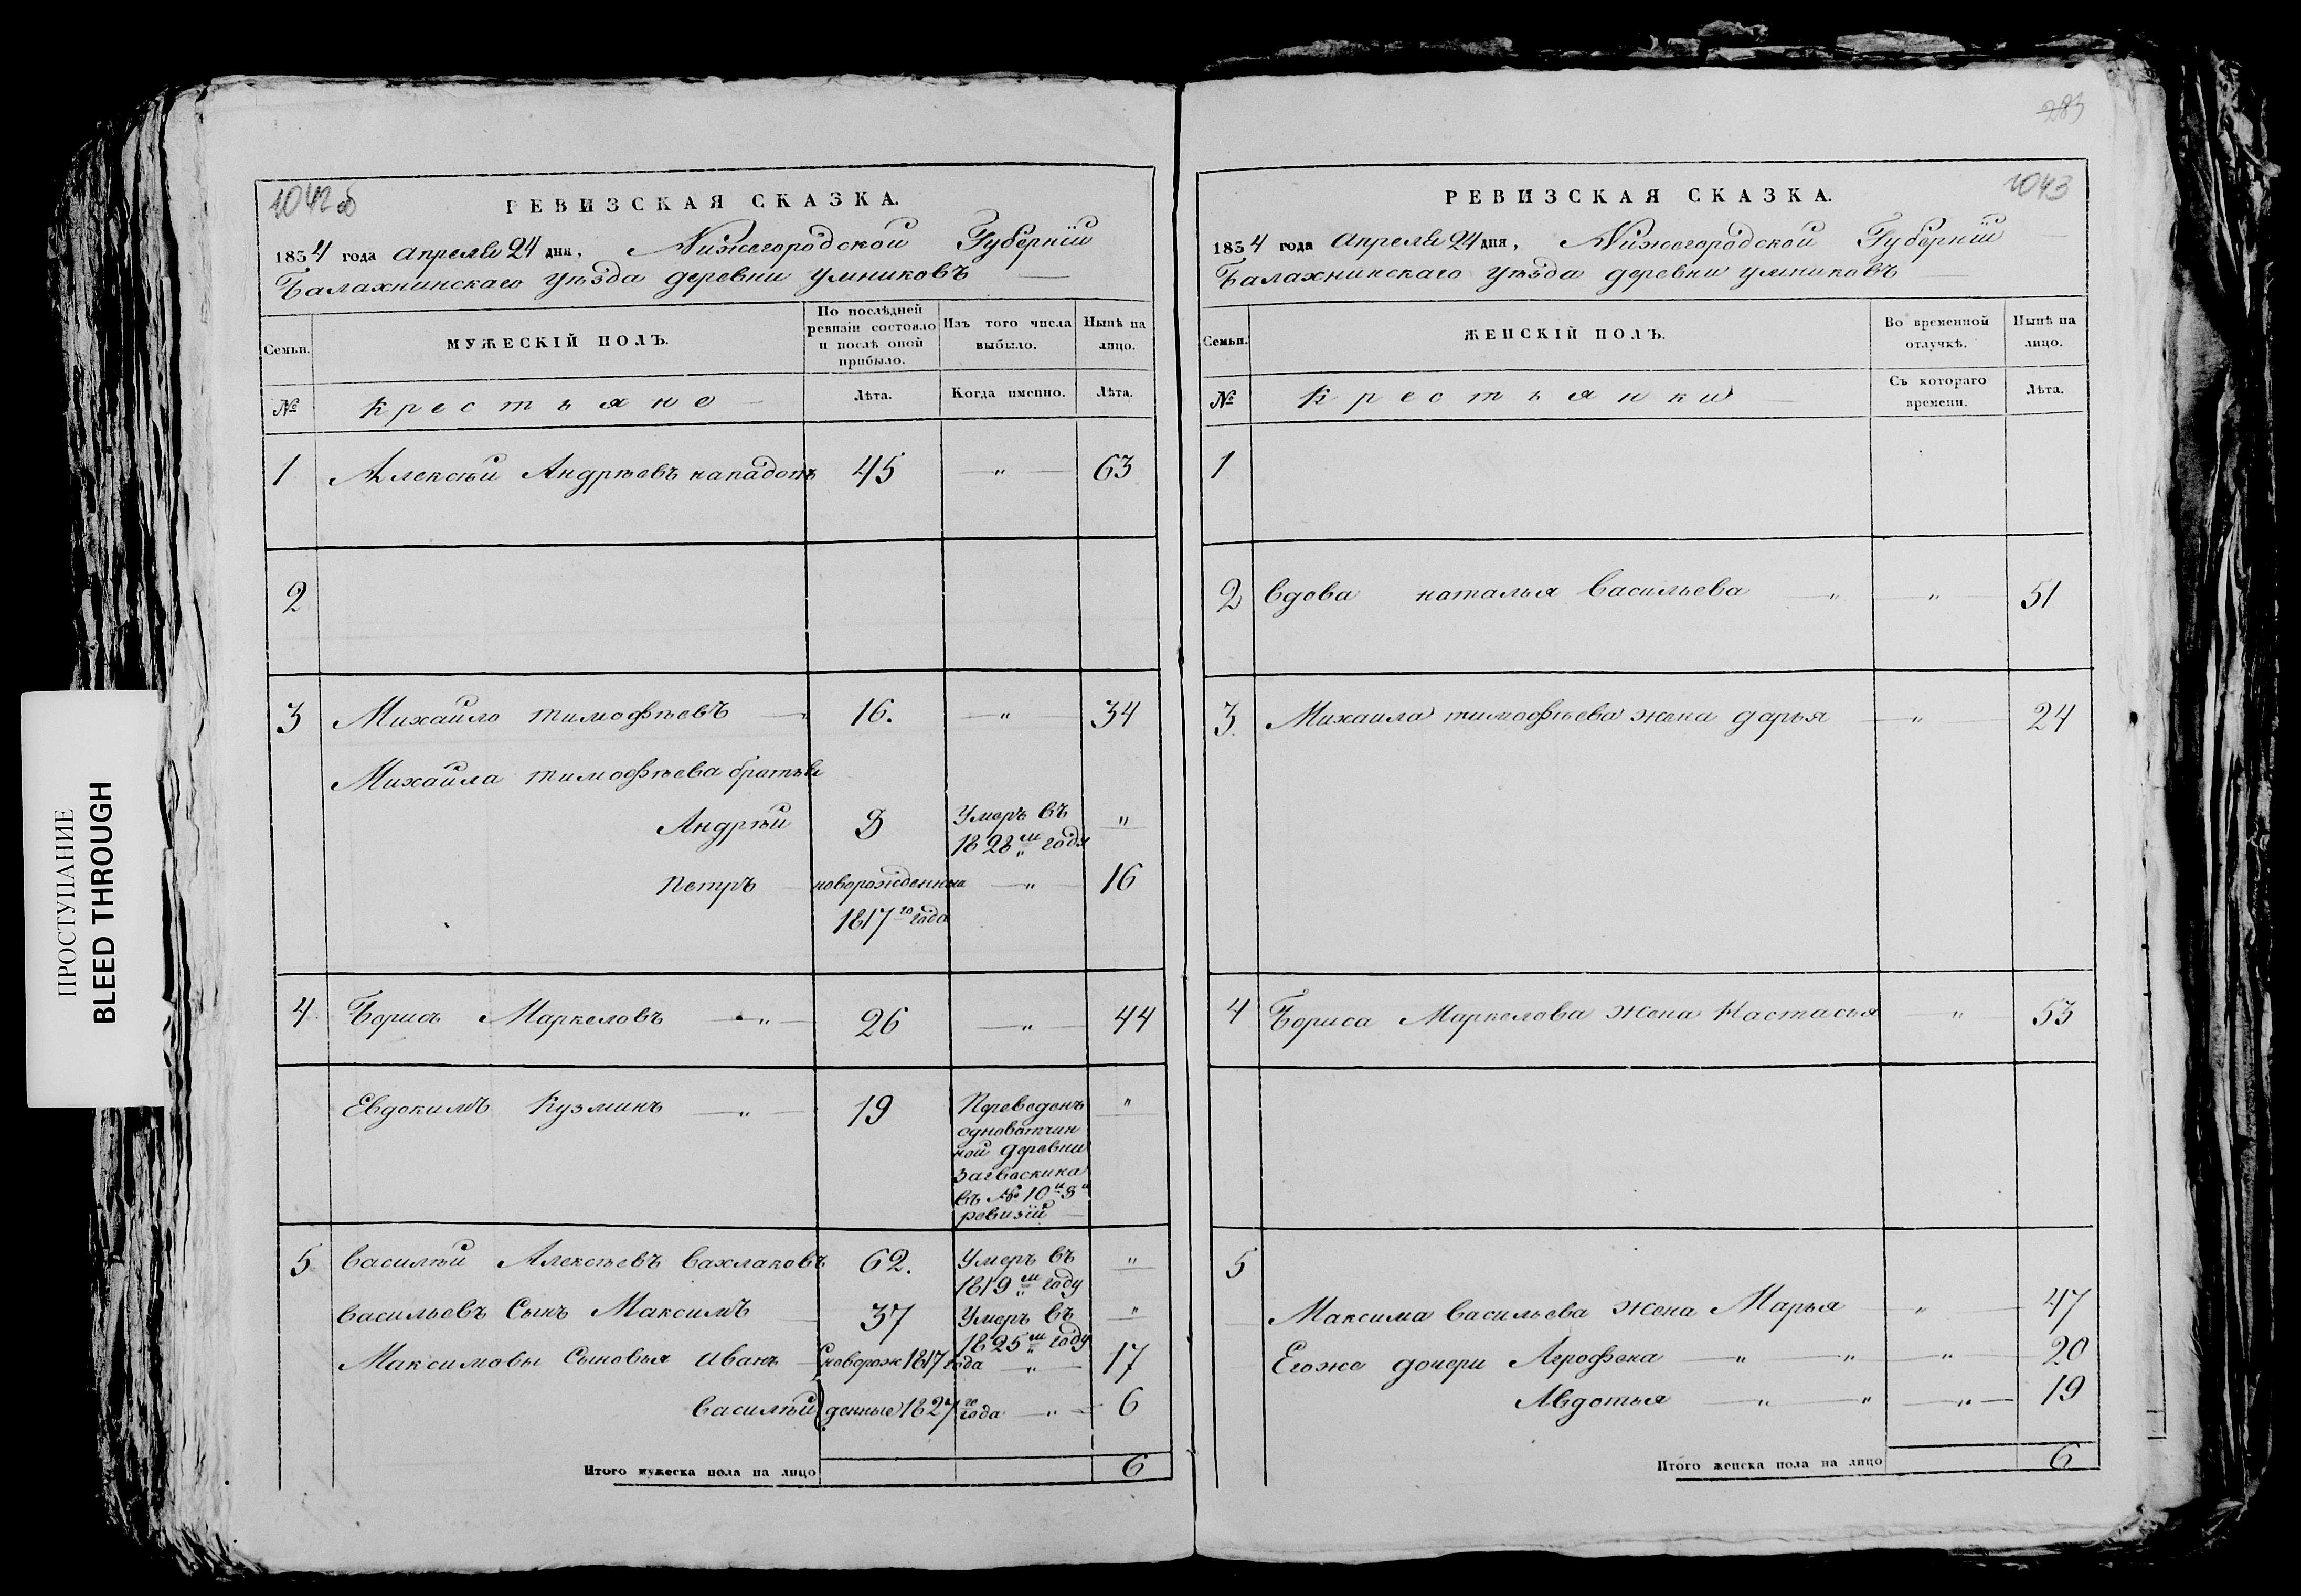 ПРОСТУПАНИЕ
BLEED THROUGH
1042 об
РЕВИЗСКАЯ СКАЗКА.
1834 года апреля 24 дня, Нижегородской Губерніи
Балахнинскаго уѣзда деревни умниковъ
Семьи.
МУЖЕСКІЙ ПОЛЪ.
По послѣдней ревизіи состояло и послѣ оной прибыло.
Изъ того числа выбыло.
Нынѣ на лицо.
№
Крестьяне
Лѣта.
Когда именно.
Лѣта.
1 Алексѣй Андрѣевъ 45 — " — 63
2
3 Михайло тимофѣевъ — " 16. — " 34
Михайла тимофѣева братья
Андрѣй 8 Умеръ въ "
1828м году
Петръ — новорожденный — " — 16
1817го года
4 Борисъ Маркеловъ — " — 26 — " — 44
Евдокимъ Кузминъ — " — 19 Переведенъ "
одновотчин
ной деревни
Загвоскина
въ № 10й 8й
ревизіи
5 Василѣй Алексѣевъ Вахлаковъ 62. Умеръ въ "
1819м году
Васильевъ Сынъ Максимъ — 37 Умеръ въ "
1825м году
Максимовы Сыновья Иванъ — новорож 1817 года — " — 17
Василѣй денные 1827го года — " — 6
Итого мужеска пола на лицо 6
283
1043
РЕВИЗСКАЯ СКАЗКА.
1834 года апреля 24 дня, Нижегородской Губерніи
Балахнинскаго уѣзда деревни умниковъ
Семьи.
ЖЕНСКІЙ ПОЛЪ.
Во временной отлучкѣ.
Нынѣ на лицо.
№
Крестьянки
Съ котораго времени.
Лѣта.
1
2 Вдова наталья Васильева " — " — 51
3. Михаила тимофѣева жена дарья — " 24
4 Бориса Маркелова жена Настасья — " — 53
5
Максима Васильева жена Марья — " — 47
Егоже дочери Агрофена — " — " — " — 20
Авдотья — " — " — " — 19
Итого женска пола на лицо 6